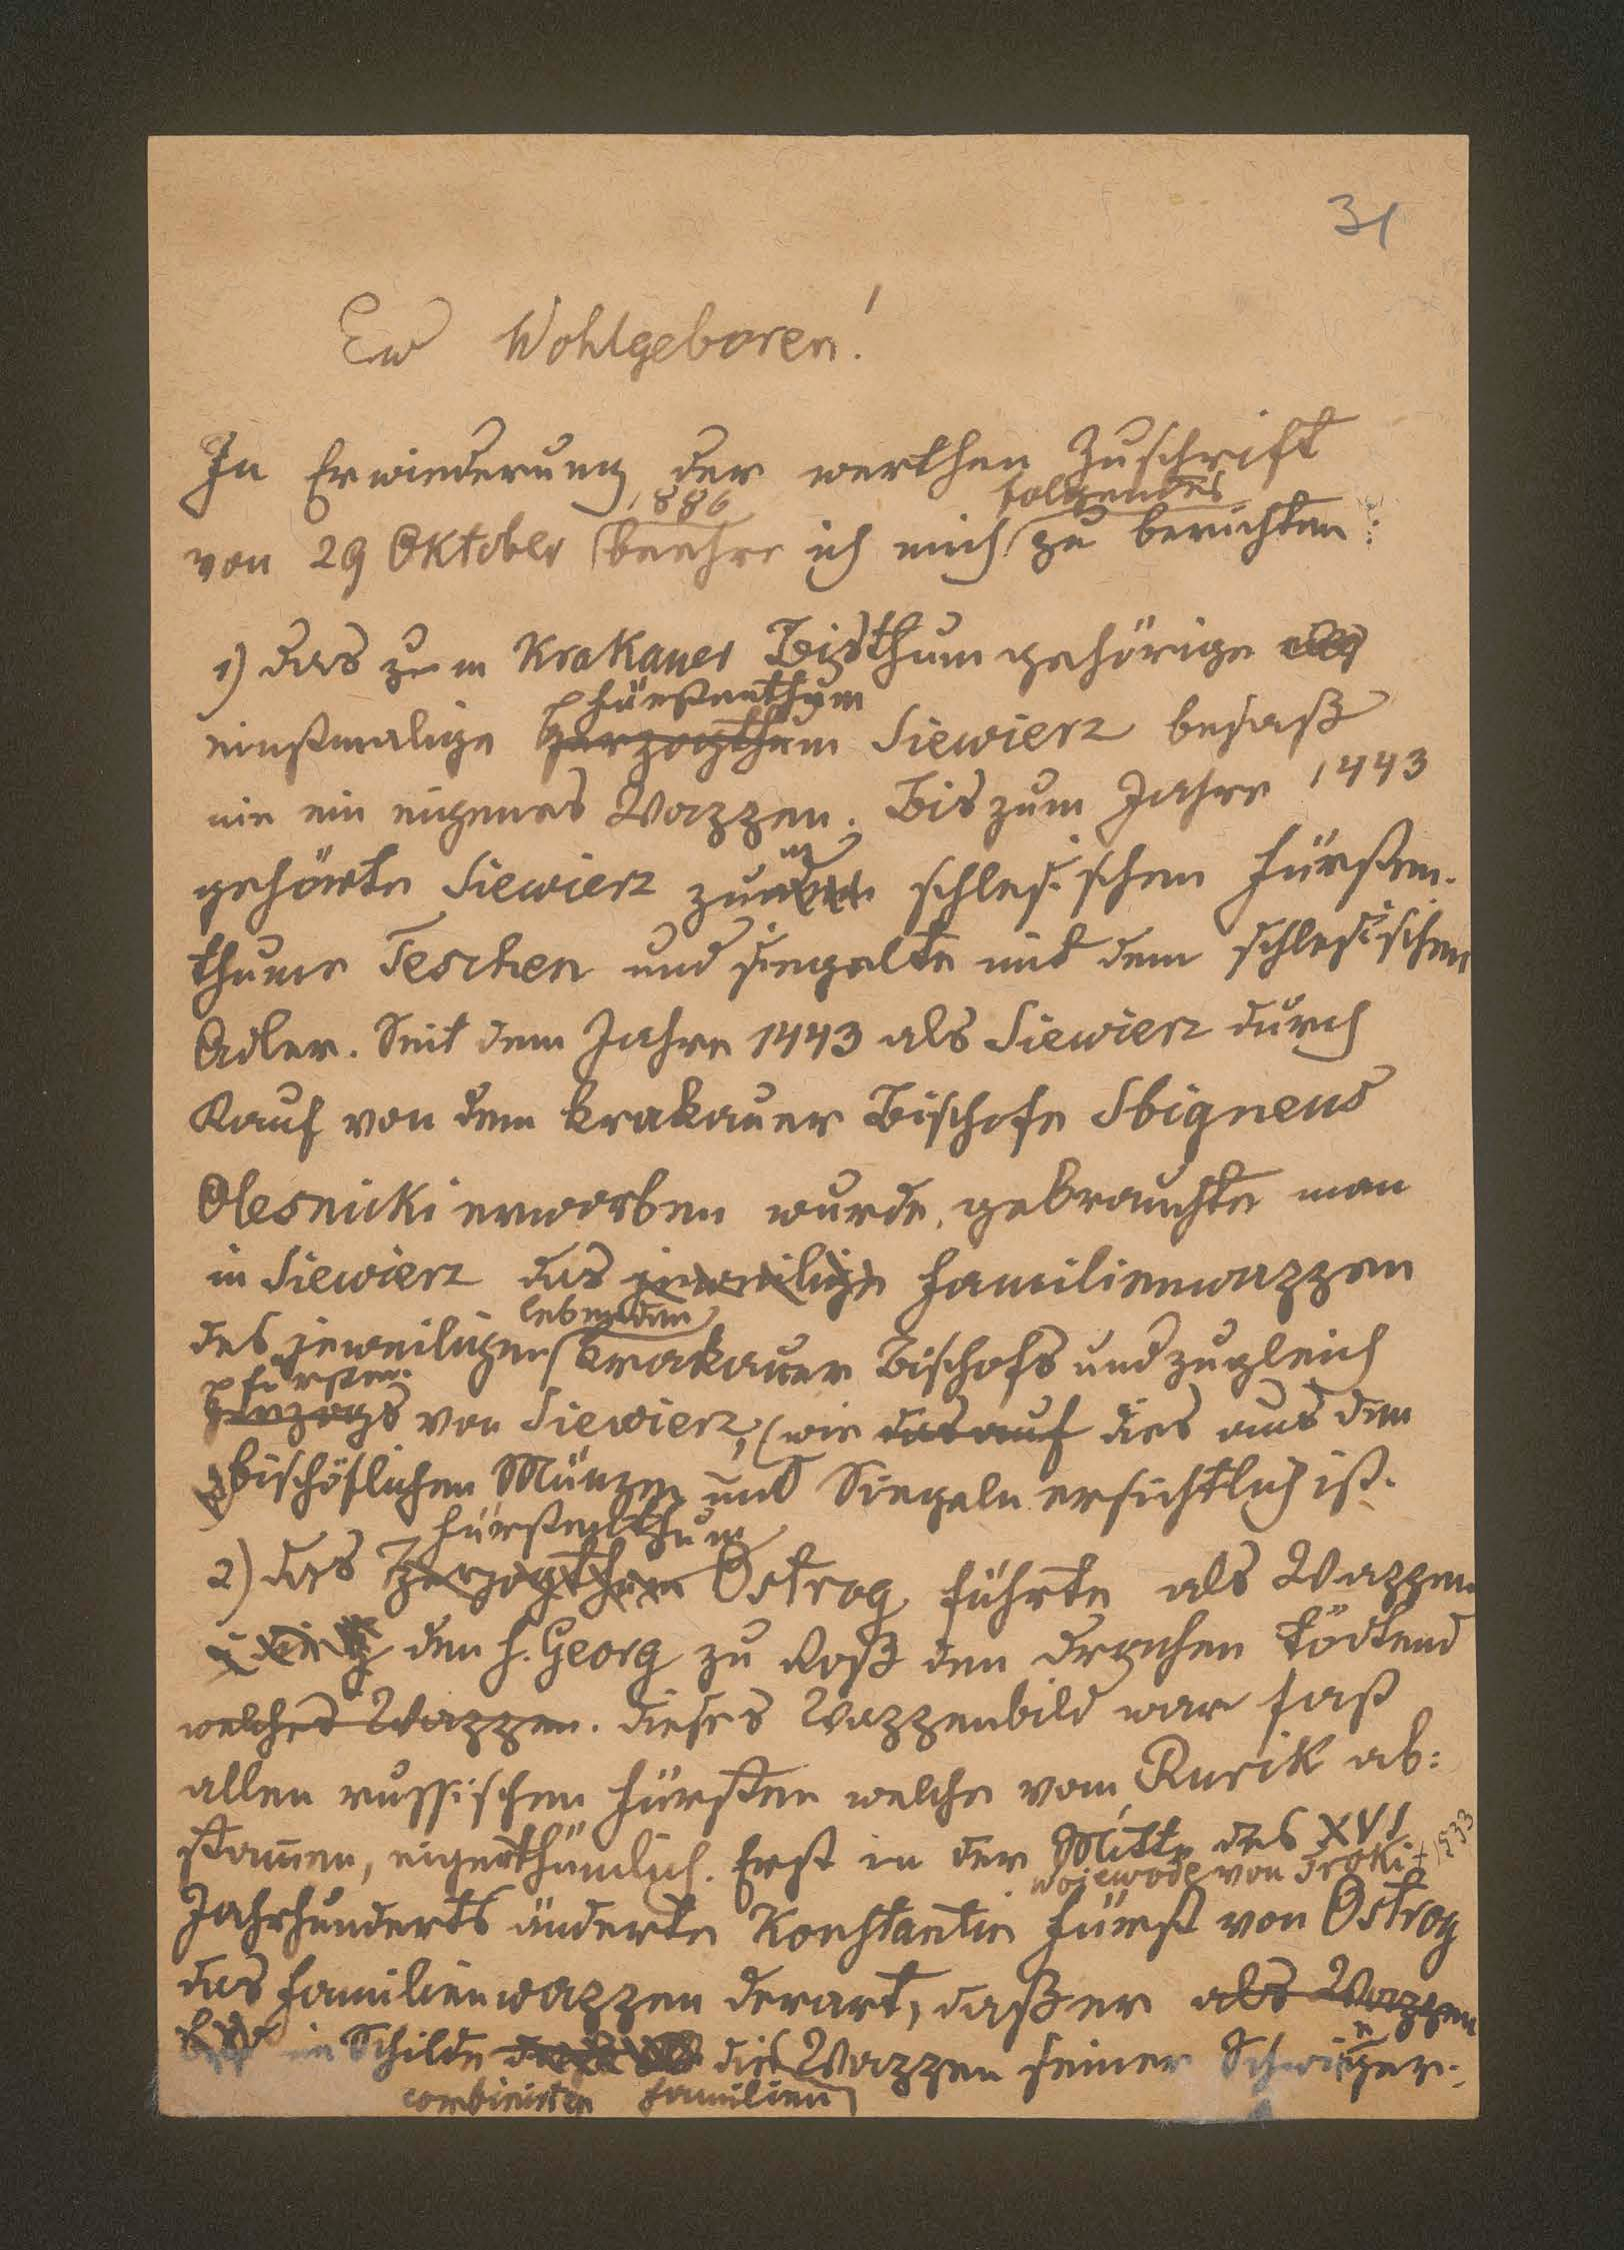 31
Ew Wohlgeboren!
In Erwiederung der werthen Zuschrift
1886 folgendes
von 29 Oktober beehre ich mich zu berichten:
1) das zum Krakauer Bisthum gehörige
Fürstenthum
einstmalige Herzogthum Siewierz besaß
nie ein eigenes Wappen. Bis zum Jahre 1443
gehörte Siewierz zum schlesischen Fürsten-
thume Teschen und siegelte mit dem schlesischen
Adler. Seit dem Jahre 1443 als Siewierz durch
Kauf von dem Krakauer Bischofe Sbigneus
Olesnicki erworben wurde, gebrauchte man
in Siewierz das jeweilige Familienwappen
lebenden
des jeweiligen Krakauer Bischofs und zugleich
Fürsten
Herzogs von Siewierz, (wie das auf dies aus den
bischöflichen Münzen und Siegeln ersichtlich ist.
Fürstenthum
2) das Herzogthum Ostrog führte als Wappen
den h. Georg zu Roß den Drachen tödtend
welches Wappen. dieses Wappenbild war fast
allen russischen Fürsten welche vom Rurik ab:
stamen, eigenthümlich. Erst in der Mitte des XVI
Wojewode von Troki + 1533
Jahrhunderts änderte Konstantin Fürst von Ostrog
das Familienwappen derart, daß er als Wappen
im Schilde die Wappen seiner Schwieger-
combinirten Familien